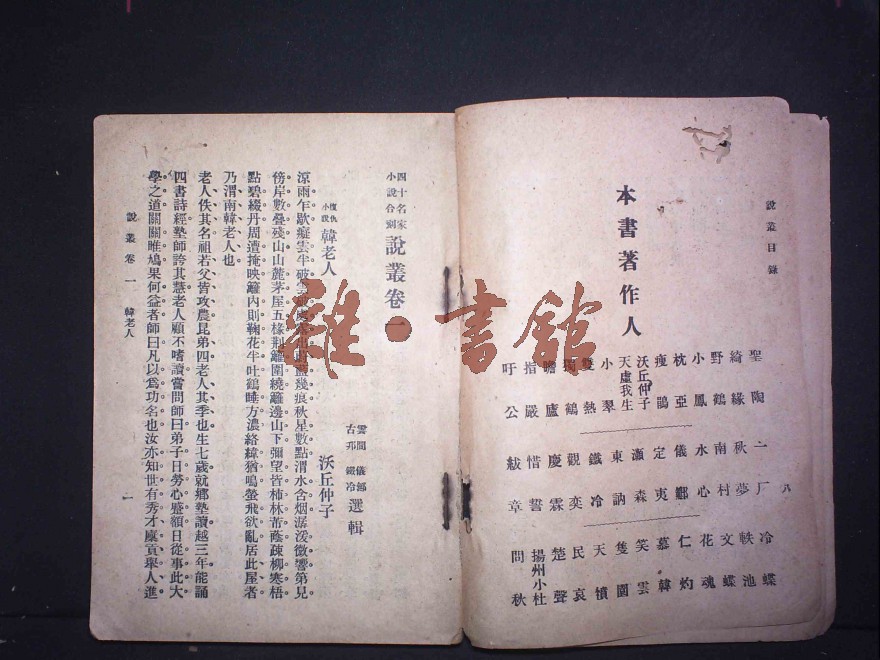 說叢目錄
八
本書著作人
聖陶
綺緣
野鶴
小鳳
枕亞
瘦鵑
沃丘仲子
天虛我生
小翠
雙熱
瞻廬
指嚴
吁公
一厂
秋夢
南村
水心
儀鄉
定夷
瀨森
東訥
鐵冷
觀奕
慶霖
惜誓
紱章
冷蝶
軼池
文蝶
花魂
仁灼
慕韓
笑雲
隻園
天憤
民哀
楚聲
揚州小杜
問秋
四十名家
小說合刻
說叢卷一
雲間 儀鄉
古邗 鐵冷
選輯
復仇
小說
韓老人
沃丘仲子
涼雨乍歇癡雲半破幾痕秋星數點渭水含烟潺湲微響第見
傍岸數叠殘山山麓茅屋五椽荆籬圍繞籬邊山下彌望皆柿林蓊蔭疎柳寒梧
點碧綴丹周遭掩映籬内則鞠花半吐鶴睡方濃絡緯猶鳴螢飛欲亂居此屋者
乃渭南韓老人也
老人佚其名祖若父皆攻農昆弟四老人其季也生七歲就鄉塾讀越三年能誦
四書詩經塾師誇其慧老人顧不嗜讀嘗問師曰弟子日勞心蹙額日從事此大
學之道關關雎鳩果何益者師曰凡以爲功名也汝亦知世有秀才廩貢舉人進
說叢卷一 韓老人
一
雜·書館